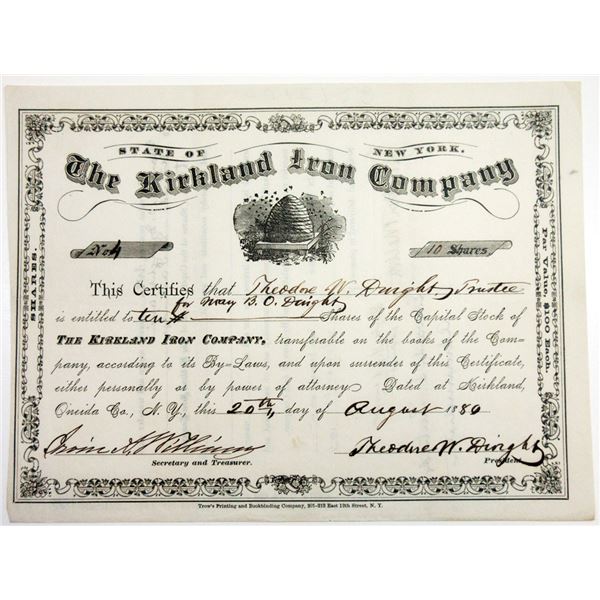 STATE OF NEW YORK.
The Kirkland Iron Company
No. 4
10 Shares
SHARES.
Par Value $100 Each.
This Certifies that Theodore W. Dwight, Trustee
for Mary B. O. Dwight
is entitled to ten Shares of the Capital Stock of
THE KIRKLAND IRON COMPANY, transferable on the books of the Com-
pany, according to its By-Laws, and upon surrender of this Certificate,
either personally or by power of attorney Dated at Kirkland,
Oneida Co., N. Y., this 20th day of August 1880
Theodore W. Dwight
Secretary and Treasurer.
President
Trow's Printing and Bookbinding Company, 201-213 East 12th Street, N. Y.